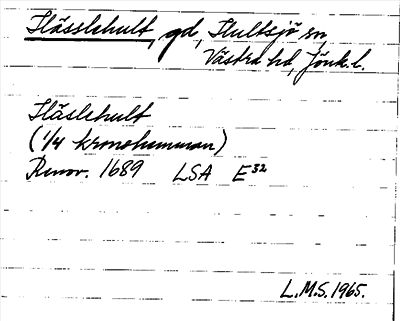 Hässlehult, gd, Hultsjö sn,
Västra hd, Jönk. l.
Häslehult
(1/4 kronohemman)
Renov. 1689 LSA E32
L.M.S. 1965.